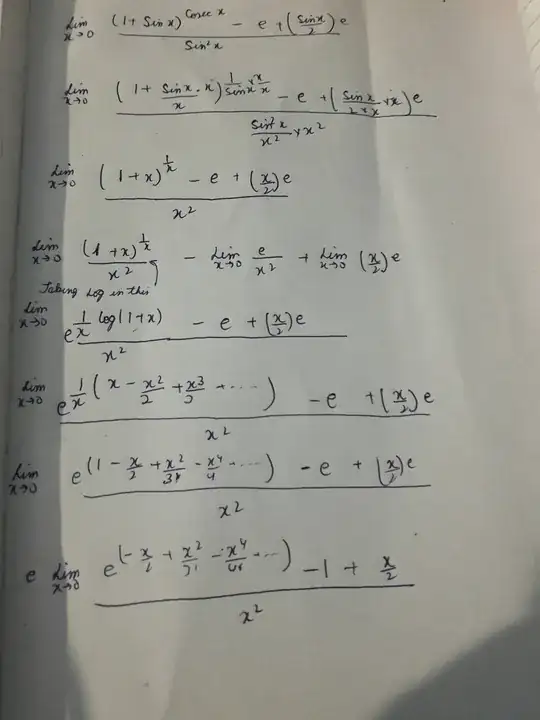 lim x→0 ((1 + Sin x)^(Cosec x) - e + (Sin x/2) e) / Sin²x
lim x→0 ((1 + Sin x/x · x)^(1/(Sin x/x × x)) - e + (Sin x/(2 × x) × x) e) / (Sin²x/x² × x²)
lim x→0 ((1 + x)^(1/x) - e + (x/2) e) / x²
lim x→0 (1 + x)^(1/x) / x² - lim x→0 e/x² + lim x→0 (x/2) e
Taking Log in this
lim x→0 (e^(1/x log(1+x)) - e + (x/2) e) / x²
lim x→0 (e^(1/x (x - x²/2 + x³/3 ....)) - e + (x/2) e) / x²
lim x→0 (e^(1 - x/2 + x²/3 - x⁴/4 ....) - e + (x/2) e) / x²
e lim x→0 (e^(-x/2 + x²/3 - x⁴/4 ....) - 1 + x/2) / x²